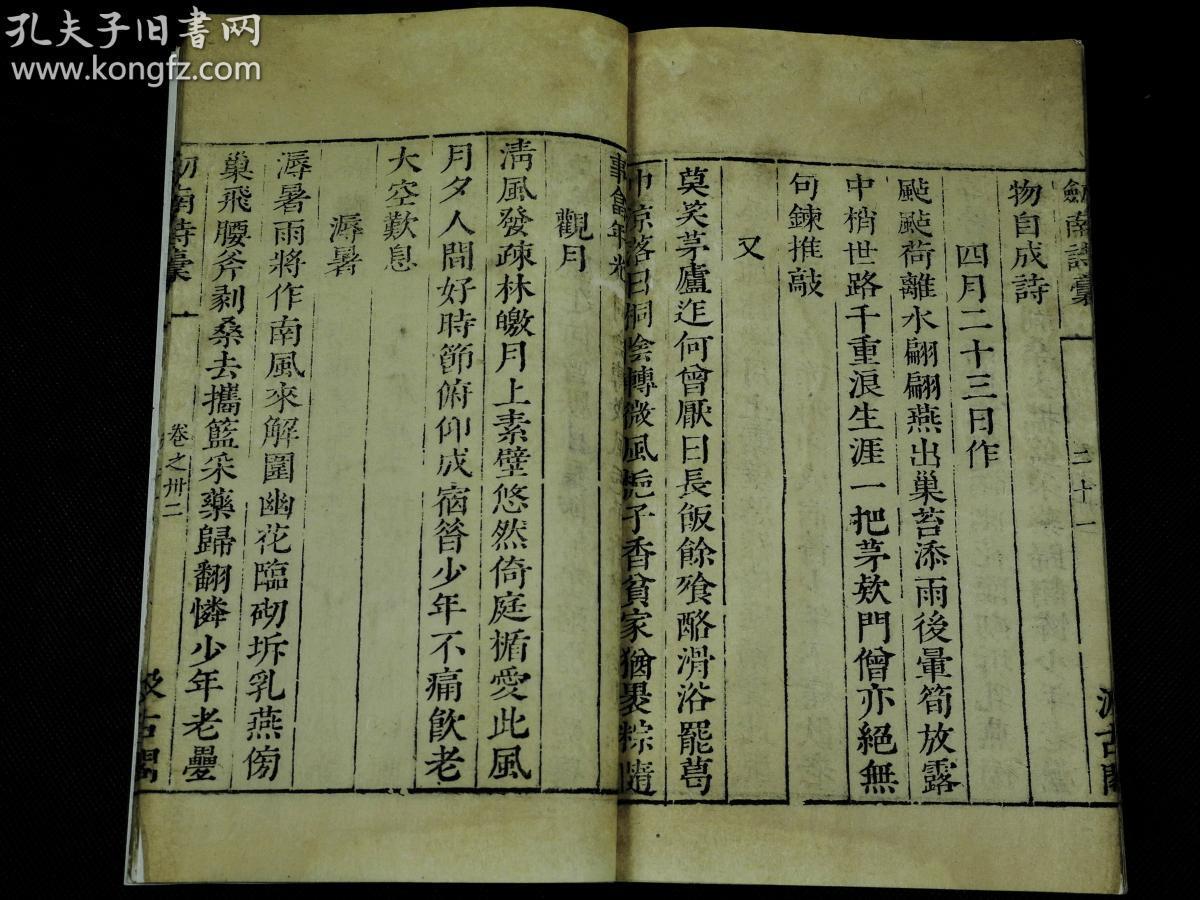 孔夫子旧书网
www.kongfz.com
劔南詩稾
二十一
汲古閣
物自成詩
四月二十三日作
颭颭荷離水翩翩燕出巢苔添雨後暈筍放露
中梢世路千重浪生涯一把茅欵門僧亦絕無
句鍊推敲
又
莫笑茅廬迮何曾厭日長飯餘飱酪滑浴罷葛
巾涼落日桐陰轉微風梔子香貧家猶裹粽隨
事當年光
觀月
淸風發疎林皦月上素壁悠然倚庭楯愛此風
月夕人間好時節俯仰成宿昝少年不痛飮老
大空歎息
溽暑
溽暑雨將作南風來解圍幽花臨砌坼乳燕傍
巢飛腰斧剥桑去攜籃采藥歸翻憐少年老疊
劔南詩稾
卷之卅二
汲古閣